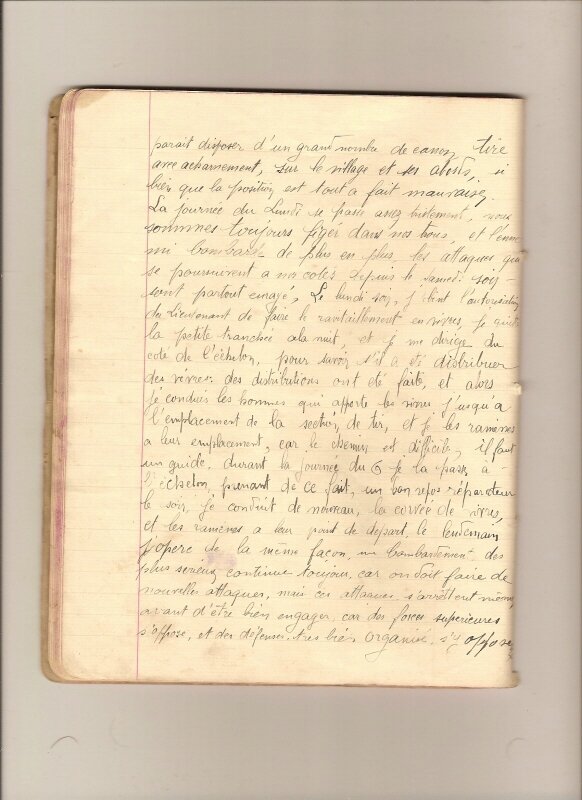 parait disposer d'un grand nombre de canon, tire
avec acharnement, sur le village et ses abords, si
bien que la position est tout a fait mauvaise,
La journée du Lundi se passe assez tristement, nous
sommes toujours figer dans nos trous, et l'enne
mi bombarde de plus en plus, les attaques qui
se poursuivent a nos cotés depuis le samedi soir
sont partout enrayé, Le lundi soir, j'obtint l'autorisation
du lieutenant de faire le ravitaillement en vivres, je quitte
la petite tranchée a la nuit, et je me dirige du
coté de l'échelon, pour savoir s'il a été distribuer
des vivres, des distributions ont été faite, et alors
je conduis les hommes qui apporte les vivres j'usqu'a
l'emplacement de la section, de tir, et je les ramènes
a leur emplacement, car le chemin est difficile, il faut
un guide, durant la journée du 6 je la passe a
l'échelon, prenant de ce fait, un bon repos réparateur
le soir, je conduit de nouveau, la corvée de vivres,
et les ramènes a leur point de départ, le lendemain
j'opere de la même façon, un bombardement des
plus serieux continue toujours, car on doit faire de
nouvelles attaques, mais ces attaques s'arrêtent même,
avant d'être bien engager, car des forces supérieures
s'oppose, et des défenses très bien organisé, s'y oppose,